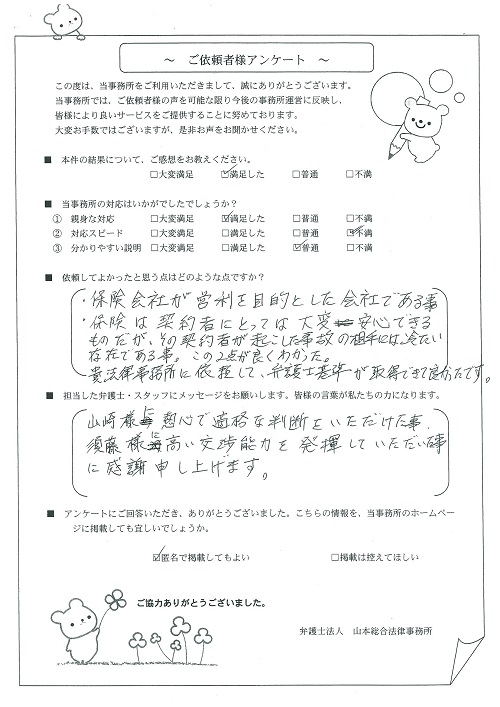 ～ ご依頼者様アンケート ～
この度は、当事務所をご利用いただきまして、誠にありがとうございます。
当事務所では、ご依頼者様の声を可能な限り今後の事務所運営に反映し、
皆様により良いサービスをご提供することに努めております。
大変お手数ではございますが、是非お声をお聞かせください。
■ 本件の結果について、ご感想をお教えください。
□大変満足 ☑満足した □普通 □不満
■ 当事務所の対応はいかがでしたでしょうか？
① 親身な対応 □大変満足 ☑満足した □普通 □不満
② 対応スピード □大変満足 □満足した □普通 ☑不満
③ 分かりやすい説明 □大変満足 □満足した ☑普通 □不満
■ 依頼してよかったと思う点はどのような点ですか？
・保険会社が営利を目的とした会社である事
・保険は契約者にとっては大変安心できる
ものだが、その契約者が起こした事故の相手には冷たい
存在である事。この2点が良くわかった。
貴法律事務所に依頼して、弁護士基準が取得できて良かったです。
■ 担当した弁護士・スタッフにメッセージをお願いします。皆様の言葉が私たちの力になります。
山崎様に熱心で適格な判断をいただけた事、
須藤様に高い交渉能力を発揮していただいた事
に感謝申し上げます。
■ アンケートにご回答いただき、ありがとうございました。こちらの情報を、当事務所のホームペー
ジに掲載しても宜しいでしょうか。
☑匿名で掲載してもよい □掲載は控えてほしい
ご協力ありがとうございました。
弁護士法人 山本総合法律事務所